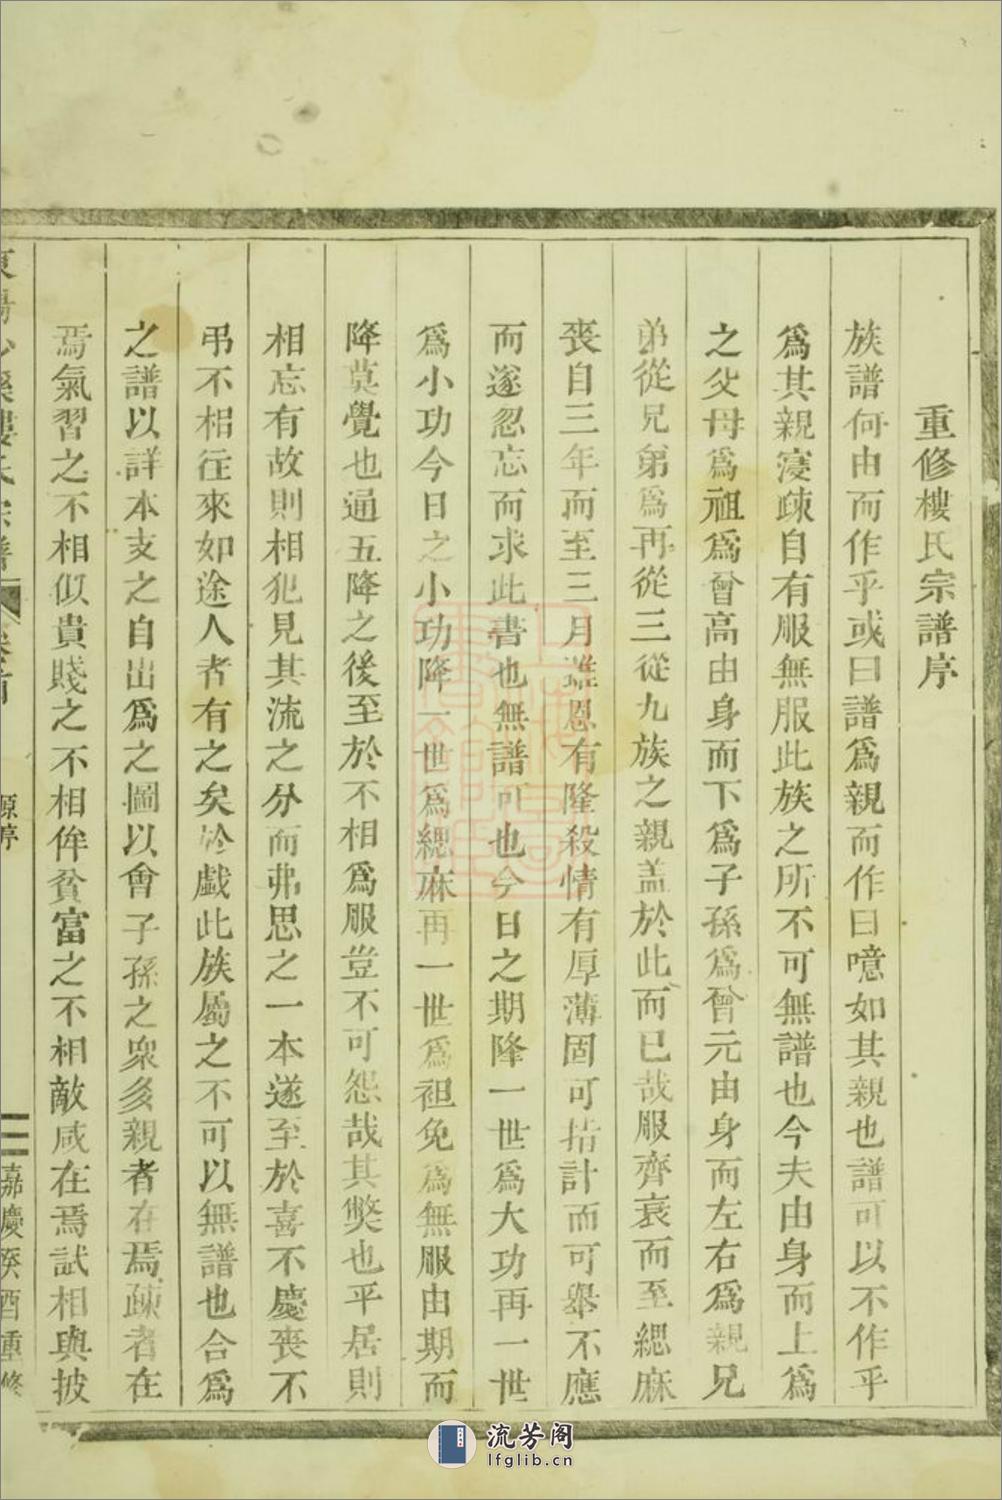 重修樓氏宗譜序
族譜何由而作乎或曰譜爲親而作曰噫如其親也譜可以不作乎
爲其親寖疎自有服無服此族之所不可無譜也今夫由身而上爲
之父母爲祖爲曾高由身而下爲子孫爲曾元由身而左右爲親兄
弟從兄弟爲再從三從九族之親盖於此而已哉服齊衰而至緦麻
喪自三年而至三月雖恩有隆殺情有厚薄固可指計而可舉不應
而遂忽忘而求此書也無譜可也今日之期降一世爲大功再一世
爲小功今日之小功降一世爲緦麻再一世爲袒免爲無服由期而
降莫覺也通五降之後至於不相爲服豈不可怨哉其獘也平居則
相忘有故則相犯見其流之分而弗思之一本遂至於喜不慶喪不
弔不相往來如途人者有之矣於戲此族屬之不可以無譜也合爲
之譜以詳本支之自出爲之圖以會子孫之衆多親者在焉疎者在
焉氣習之不相似貴賤之不相侔貧富之不相敵咸在焉試相與披
東陽沙溪樓氏宗譜 卷首 原序 三 嘉慶癸酉重修
流芳阁
lfglib.cn